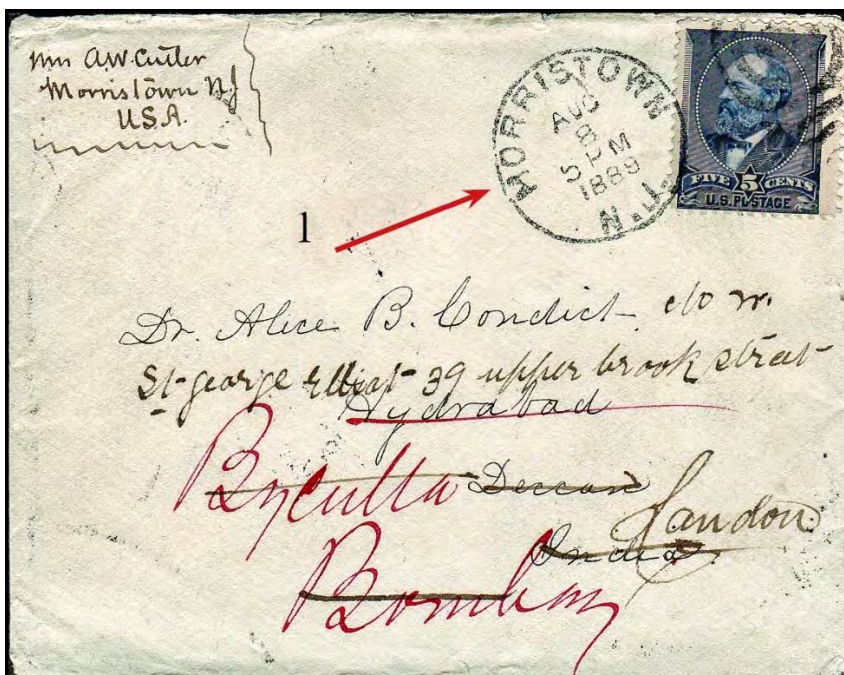 Mrs A.W. Cutler
Morristown NJ
U.S.A.
MORRISTOWN
AUG
8
5 PM
1889
N.J.
FIVE 5 CENTS
U.S. POSTAGE
1
Dr. Alice B. Condict
St George Elliot 39 upper brook street
Hydrabad
Byculla Deccan
London
India
Bombay